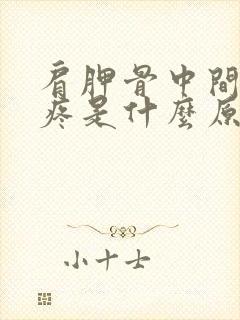 肩胛骨中間
疼是什麼原
小十士